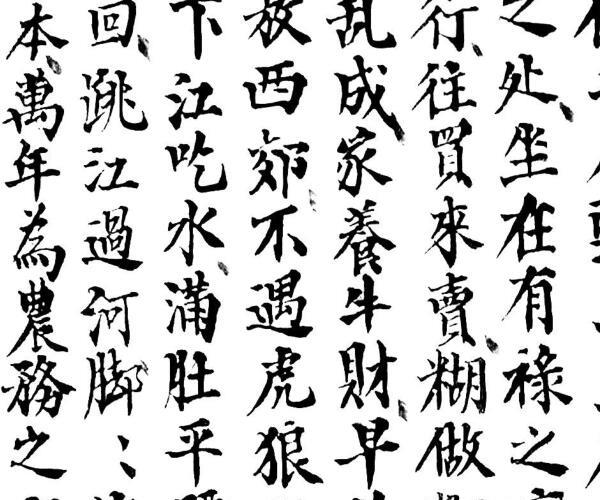 之处坐在有祿之
行往買來賣糊做
乱成家養牛財早
放西郊不遇虎狼
下江吃水滿肚平
回跳江過河脚〻
本萬年為農務之